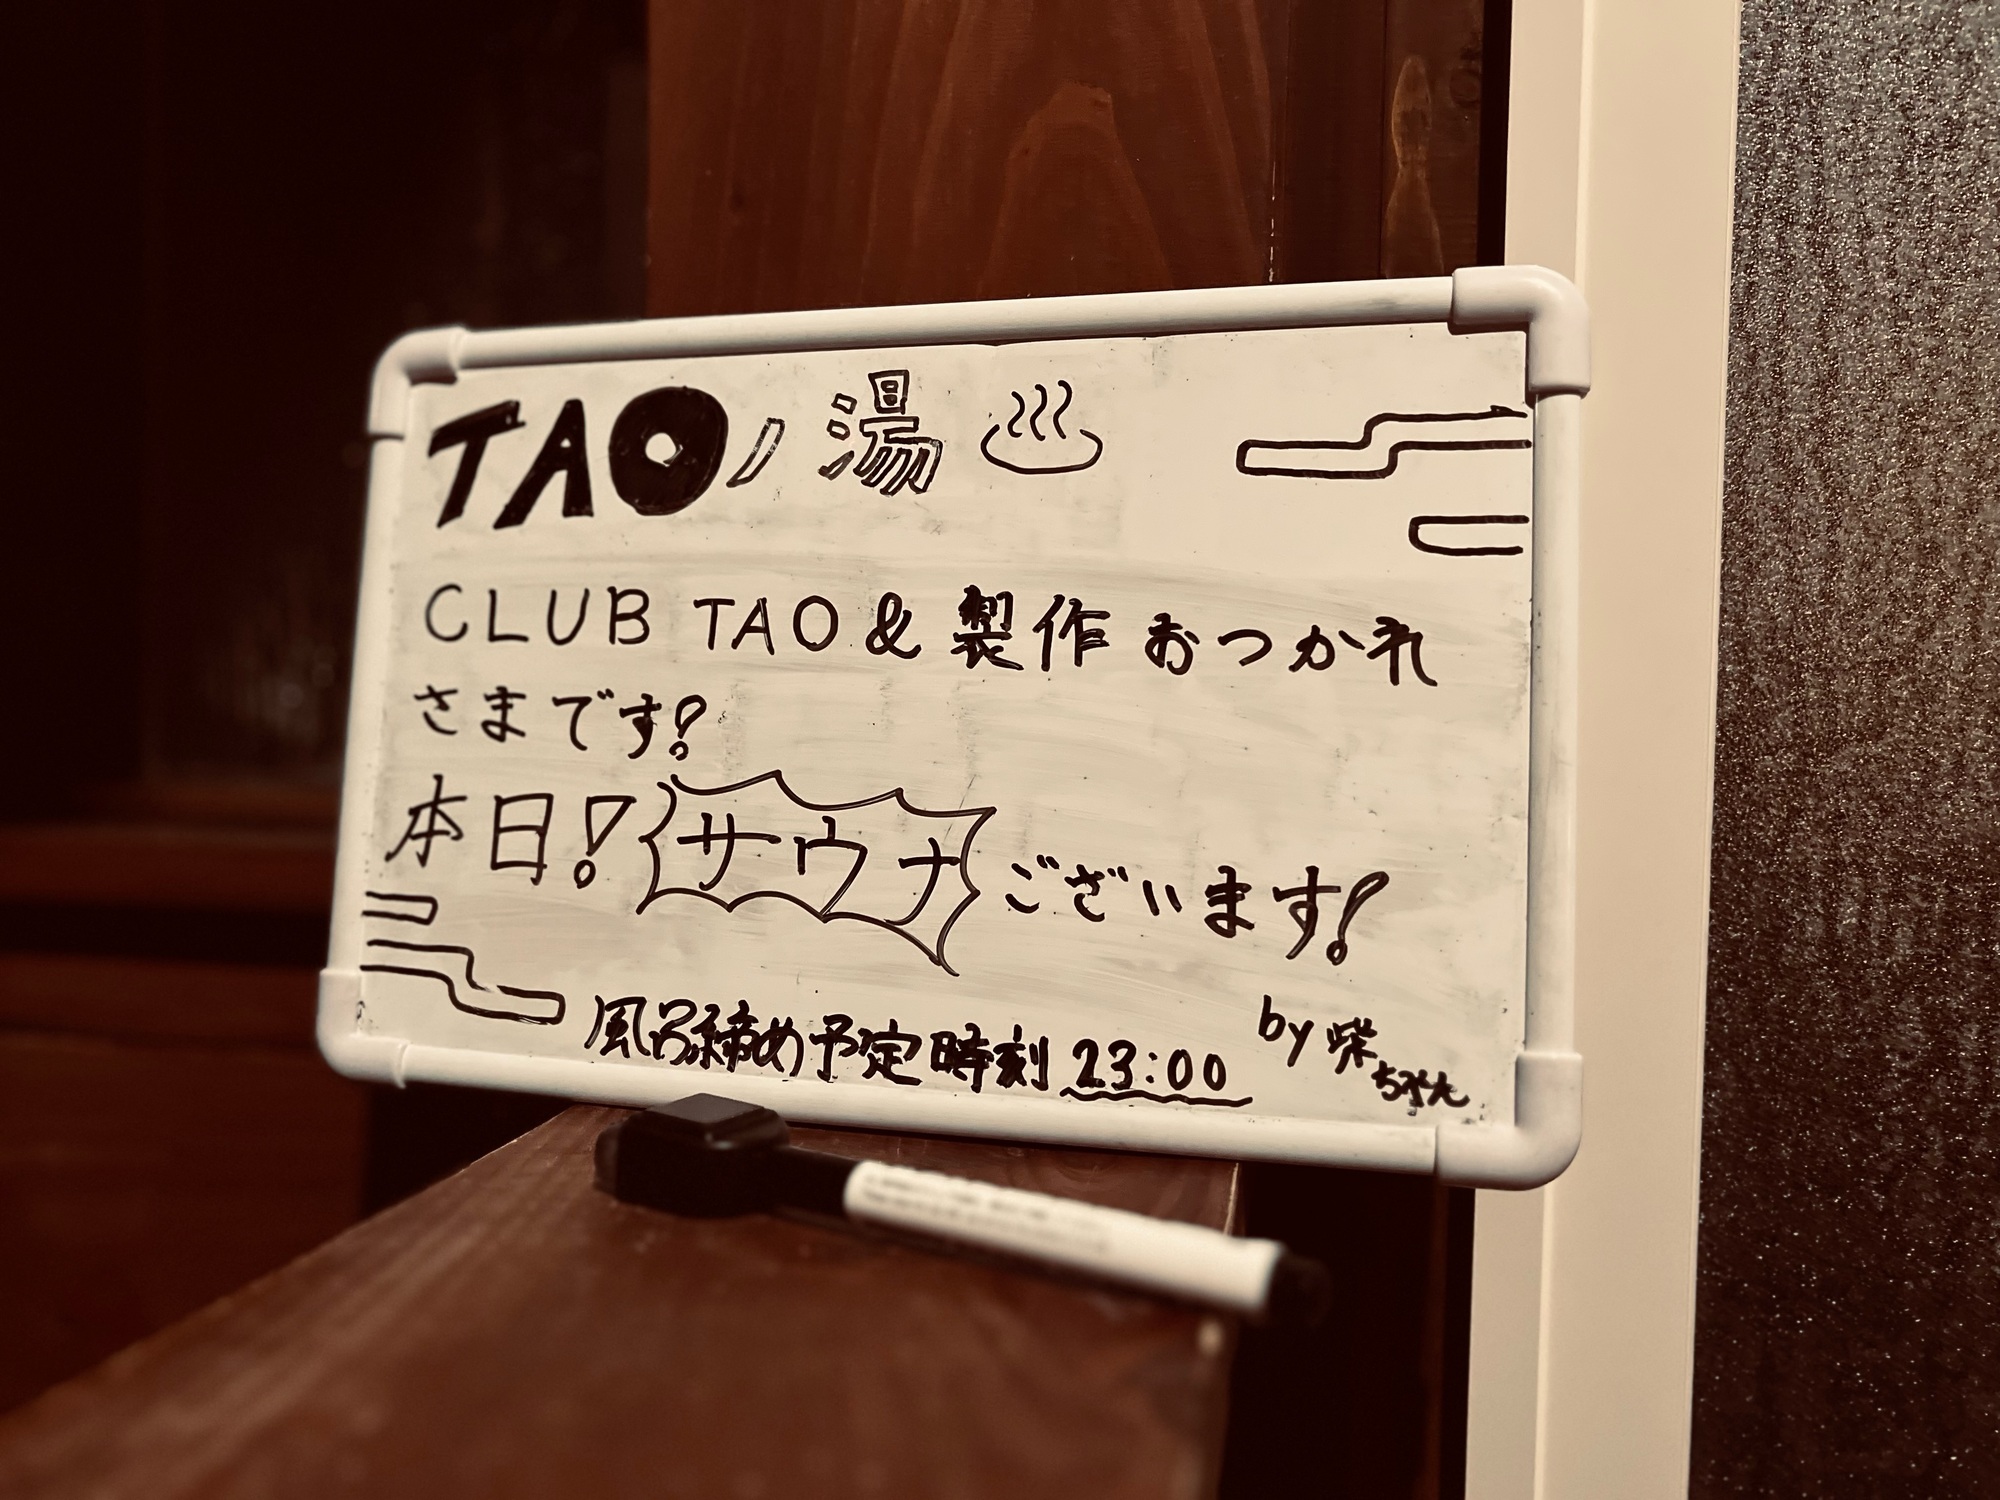 TAOノ湯♨
CLUB TAO & 製作 おつかれ
さまです!
本日! サウナ ございます!
風呂締め予定時刻 23:00
by 柴ちゃん